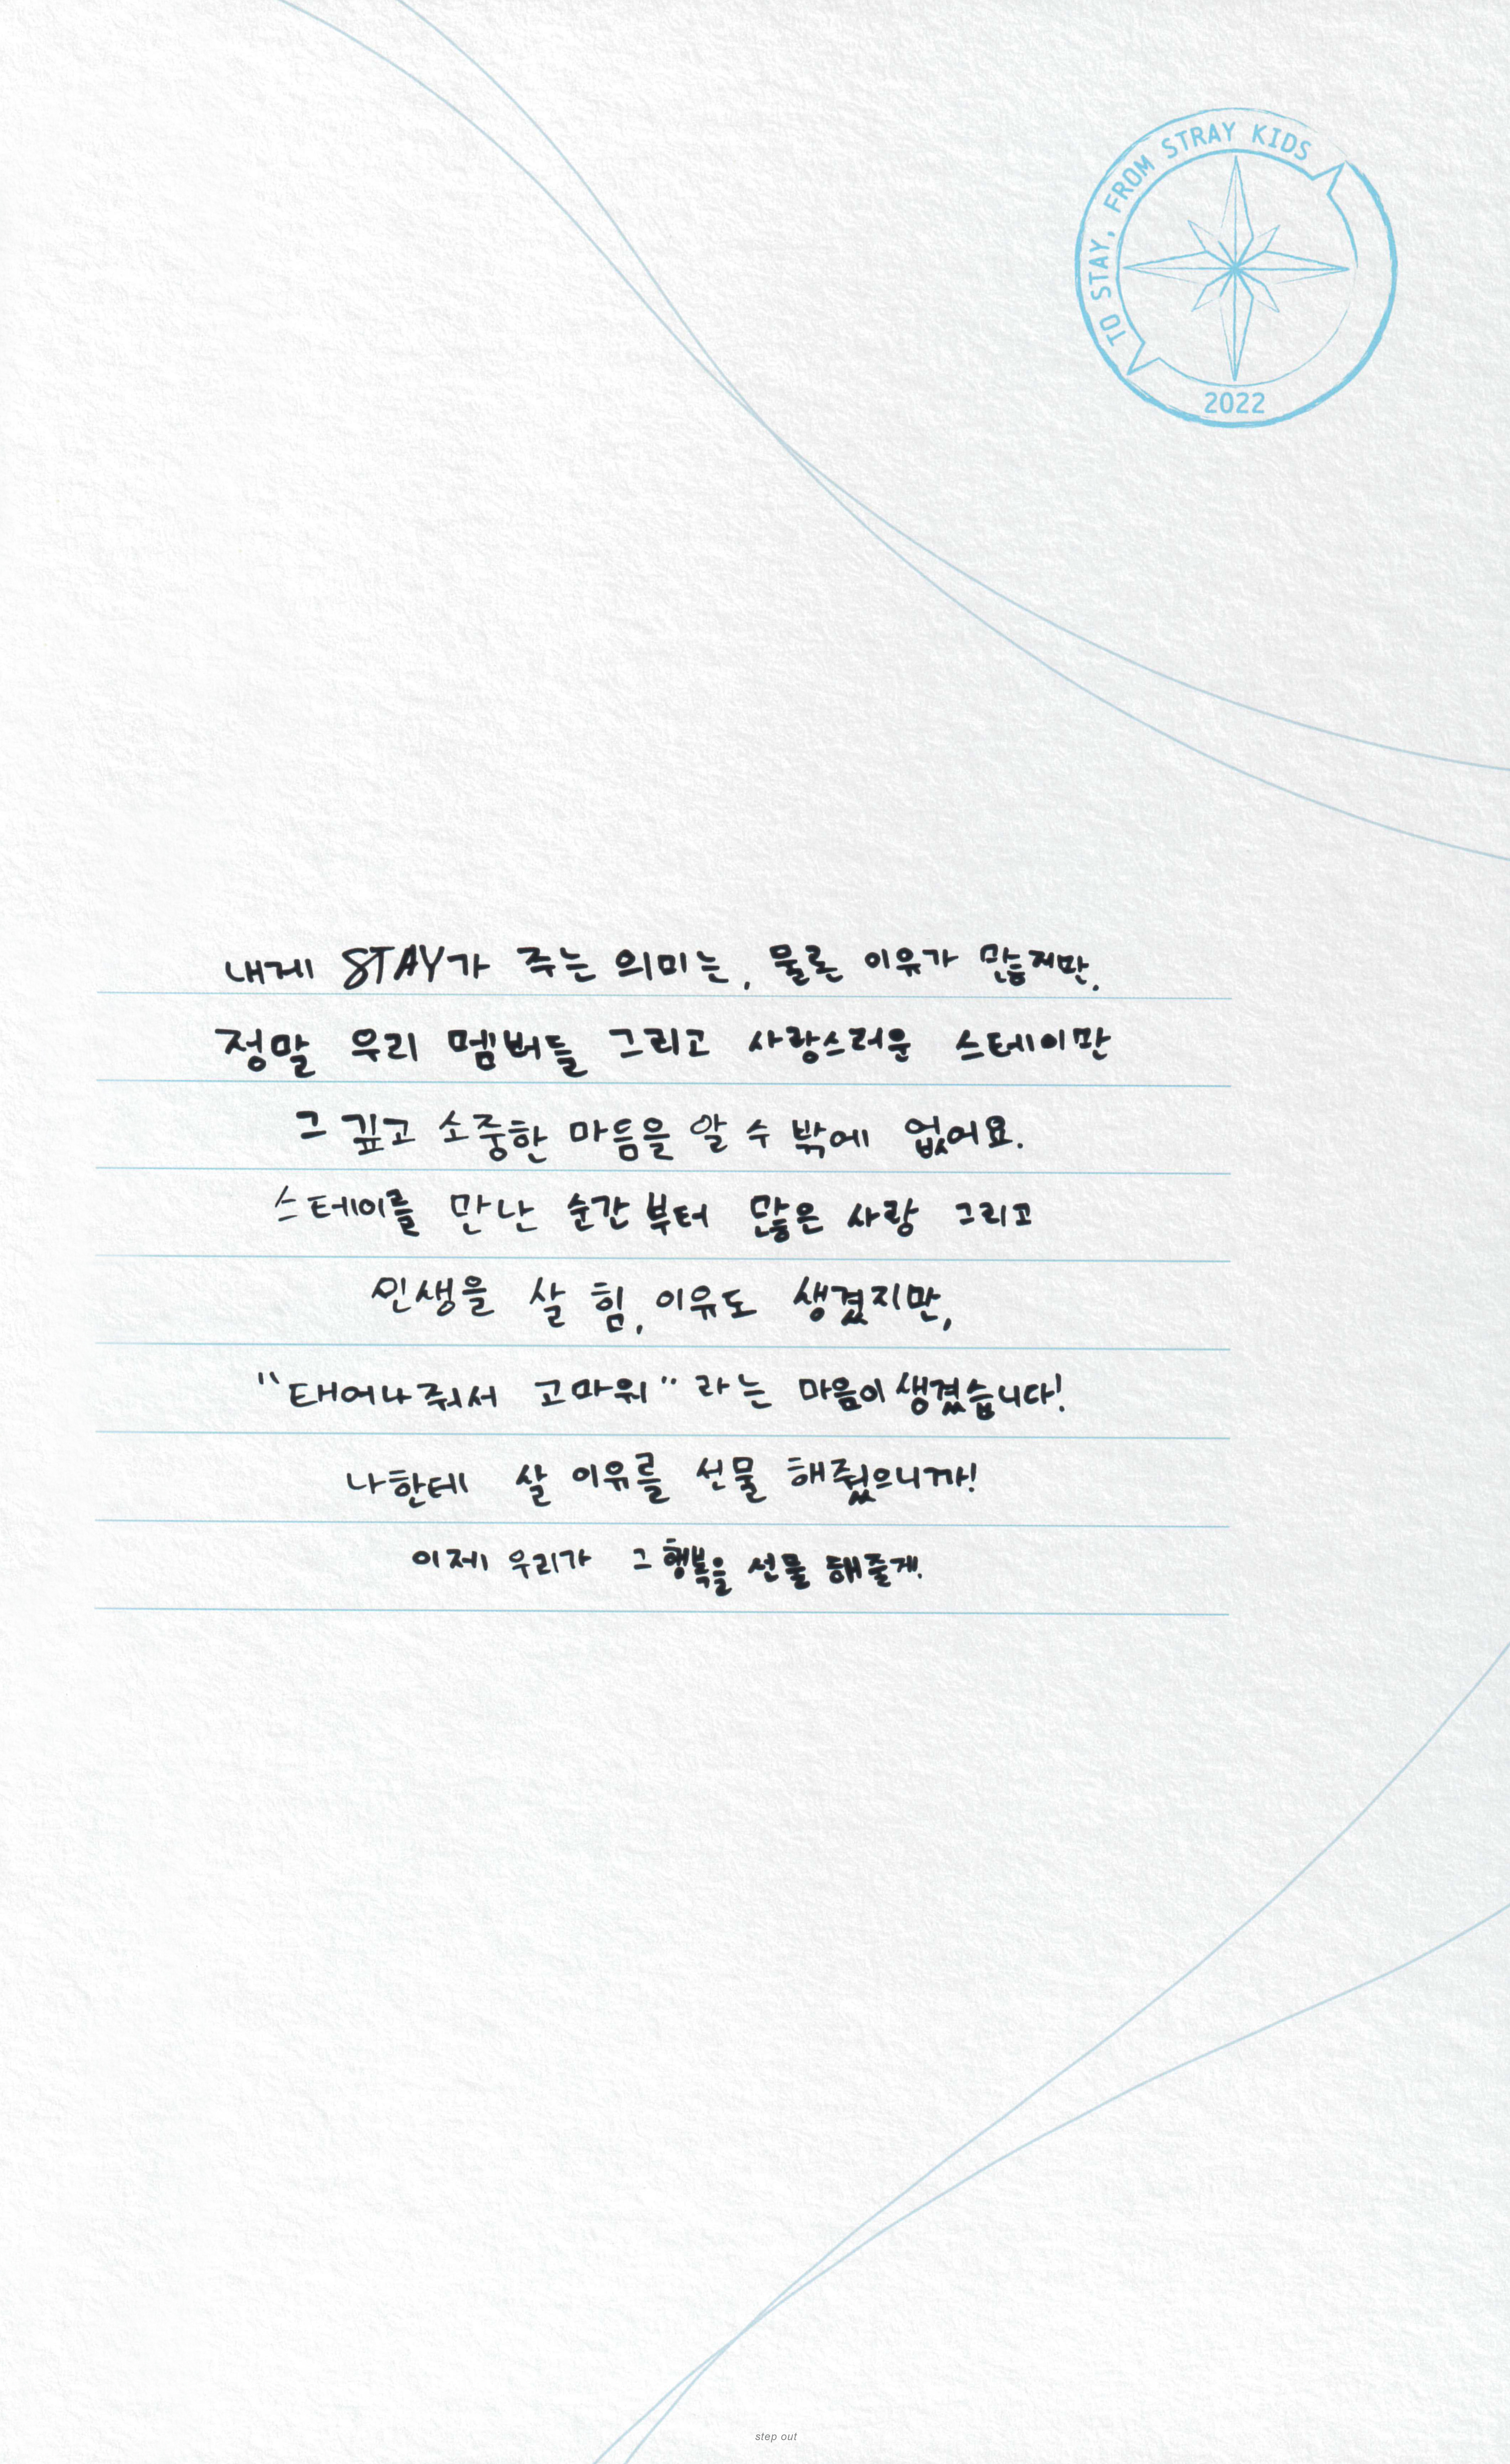 TO STAY, FROM STRAY KIDS
2022
내게 STAY가 주는 의미는, 물론 이유가 많지만,
정말 우리 멤버들 그리고 사랑스러운 스테이만
그 깊고 소중한 마음을 알 수 밖에 없어요.
스테이를 만난 순간부터 많은 사랑 그리고
인생을 살 힘, 이유도 생겼지만,
"태어나줘서 고마워" 라는 마음이 생겼습니다!
나한테 살 이유를 선물 해줬으니까!
이제 우리가 그 행복을 선물 해줄게.
step out